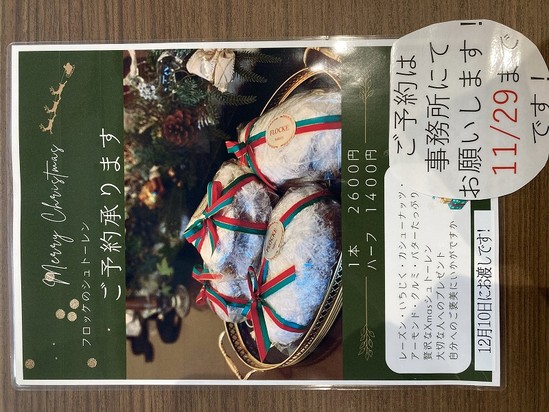 Merry Christmas
フロッケのシュトーレン
ご予約承ります
FLOCKE
1本 2600円
ハーフ 1400円
レーズン・いちじく・カシューナッツ・
アーモンド・クルミ・バターたっぷり
贅沢なXmasシュトーレン
大切な人へのプレゼント
自分へのご褒美にいかがですか
12月10日にお渡しです!
ご予約は
事務所にて
お願いします!
11/29まで
です!